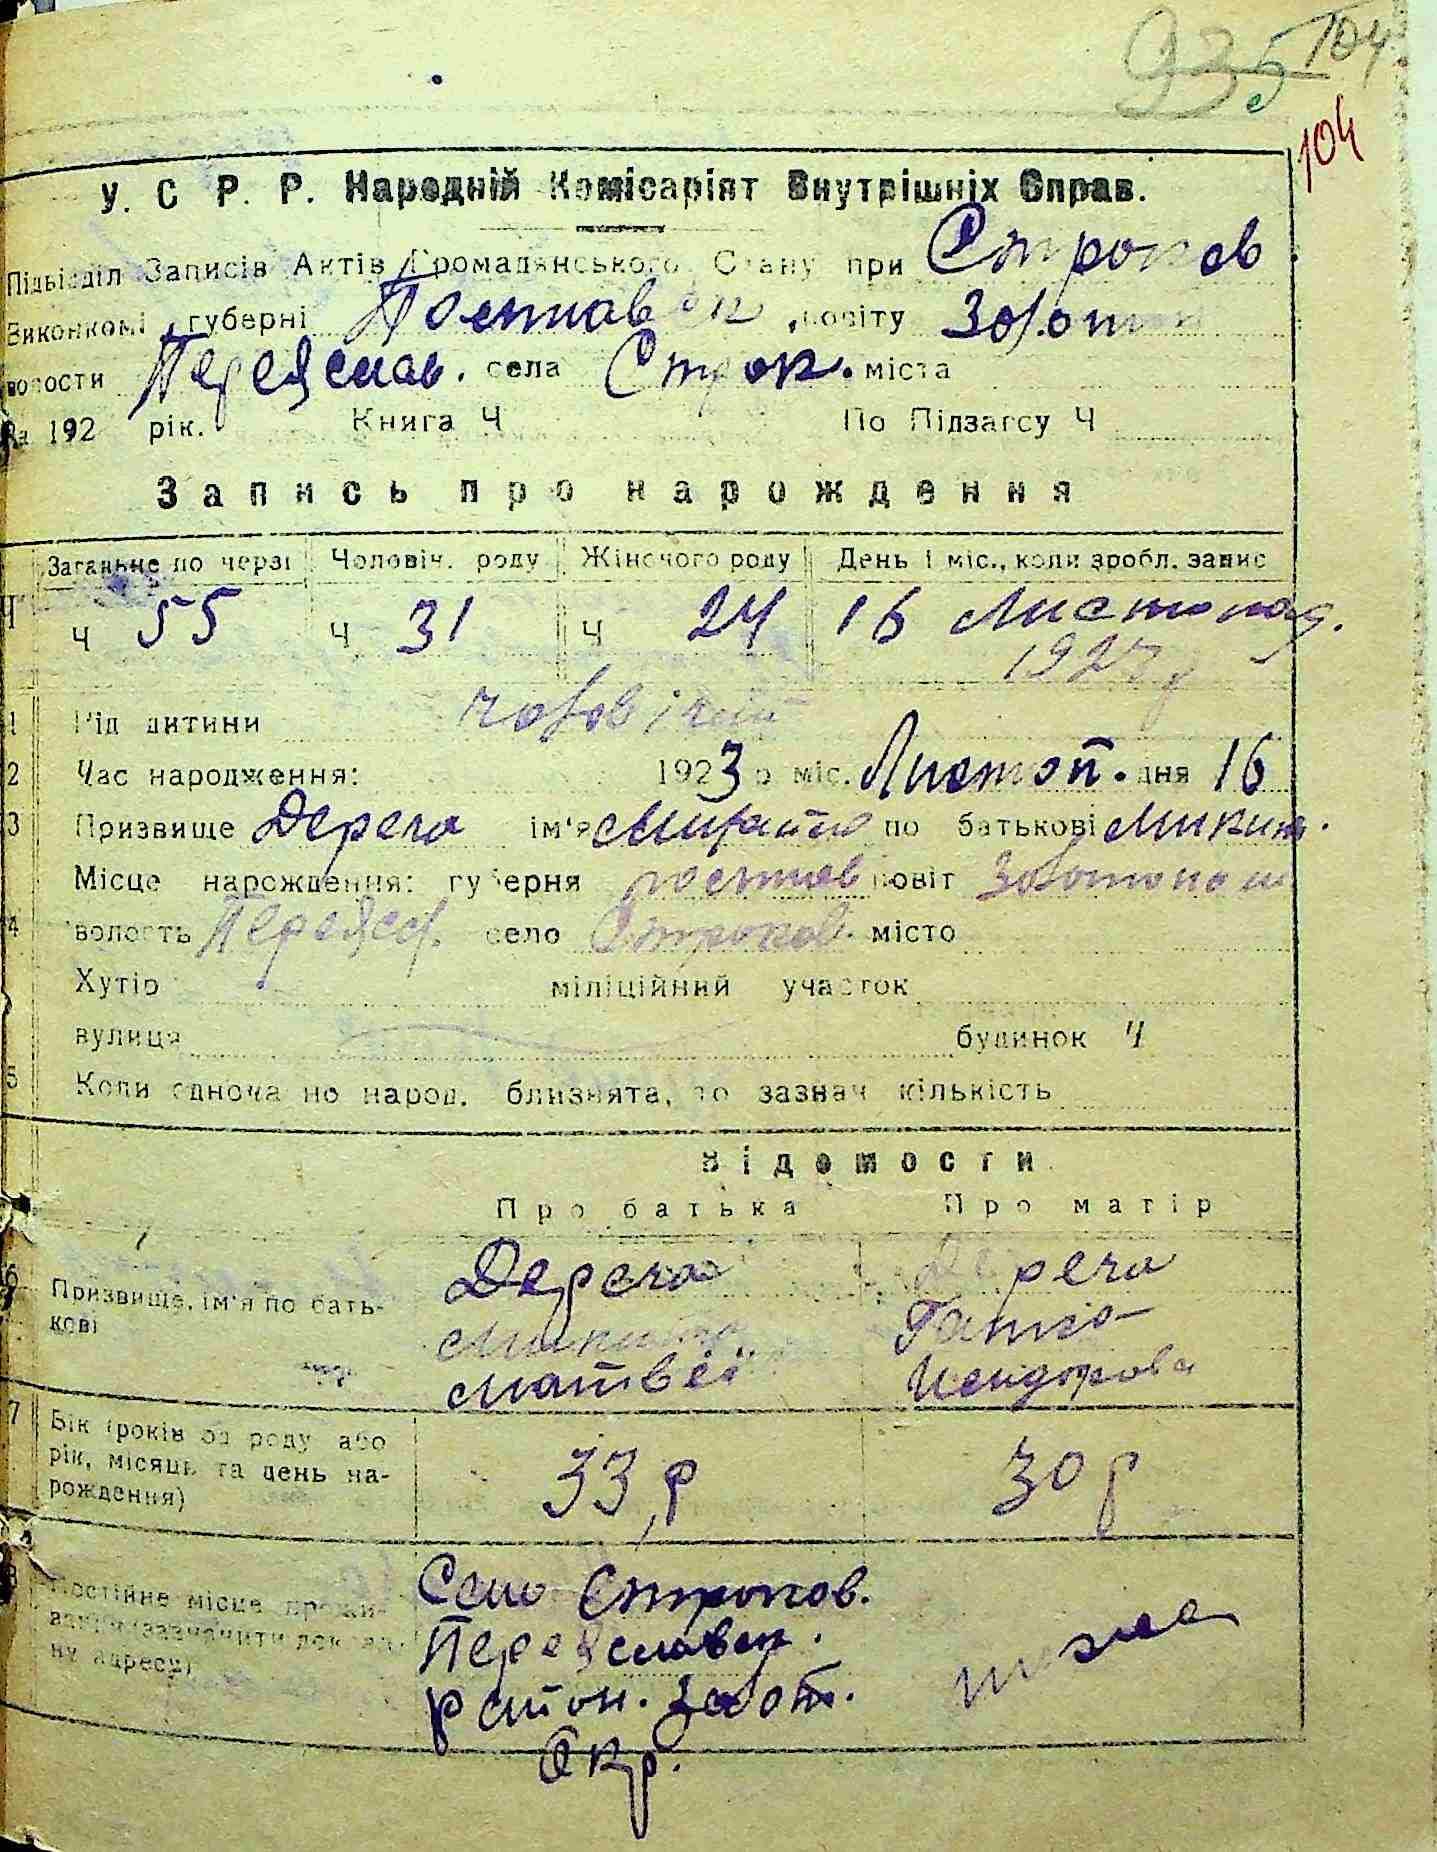 935 104
104
У. С. Р. Р. Народній Комісаріят Внутрішніх Справ.
Підвідділ Записів Актів Громадянського Стану при Строков
Виконкомі губерні Полтавськ повіту Золотон
волости Переяслав. села Строк. міста
За 192 рік. Книга Ч По Підзагсу Ч
Запись про нарождення
Загальне по черзі Чоловіч. роду Жіночого роду День і міс., коли зробл. запис
Ч Ч 55 Ч 31 Ч 24 16 Листопад.
1 Рід дитини чоловічий
2 Час народження: 1923 р міс. Листоп. дня 16
3 Призвище Дереча ім'я Михайло по батькові Микит.
Місце нарождення: губерня полтав повіт Золотонош
4 волость Переясл. село Строков. місто
Хутір міліційний участок
вулиця будинок Ч
5 Коли одночасно народ. близнята, то зазнач кількість
Відомости
Про батька Про матір
6 Призвище, ім'я по батькові Дереча Дереча
Микита Ганна
Матвій Исидорова
7 Вік (років од роду або рік, місяць та день нарождення) 33 р 30 р
8 Постійне місце проживання (зазначити докладну адресу) Село Строков.
Переяславськ.
район. Золот.
Окр.